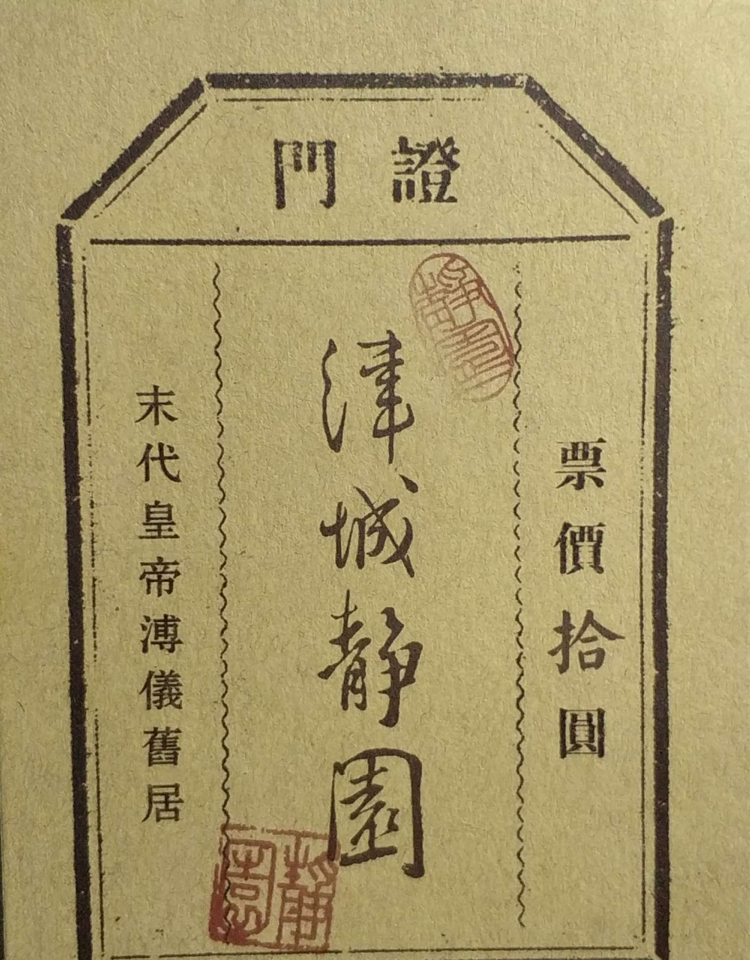 門證
票價拾圓
津城静園
末代皇帝溥儀舊居
靜園
靜園